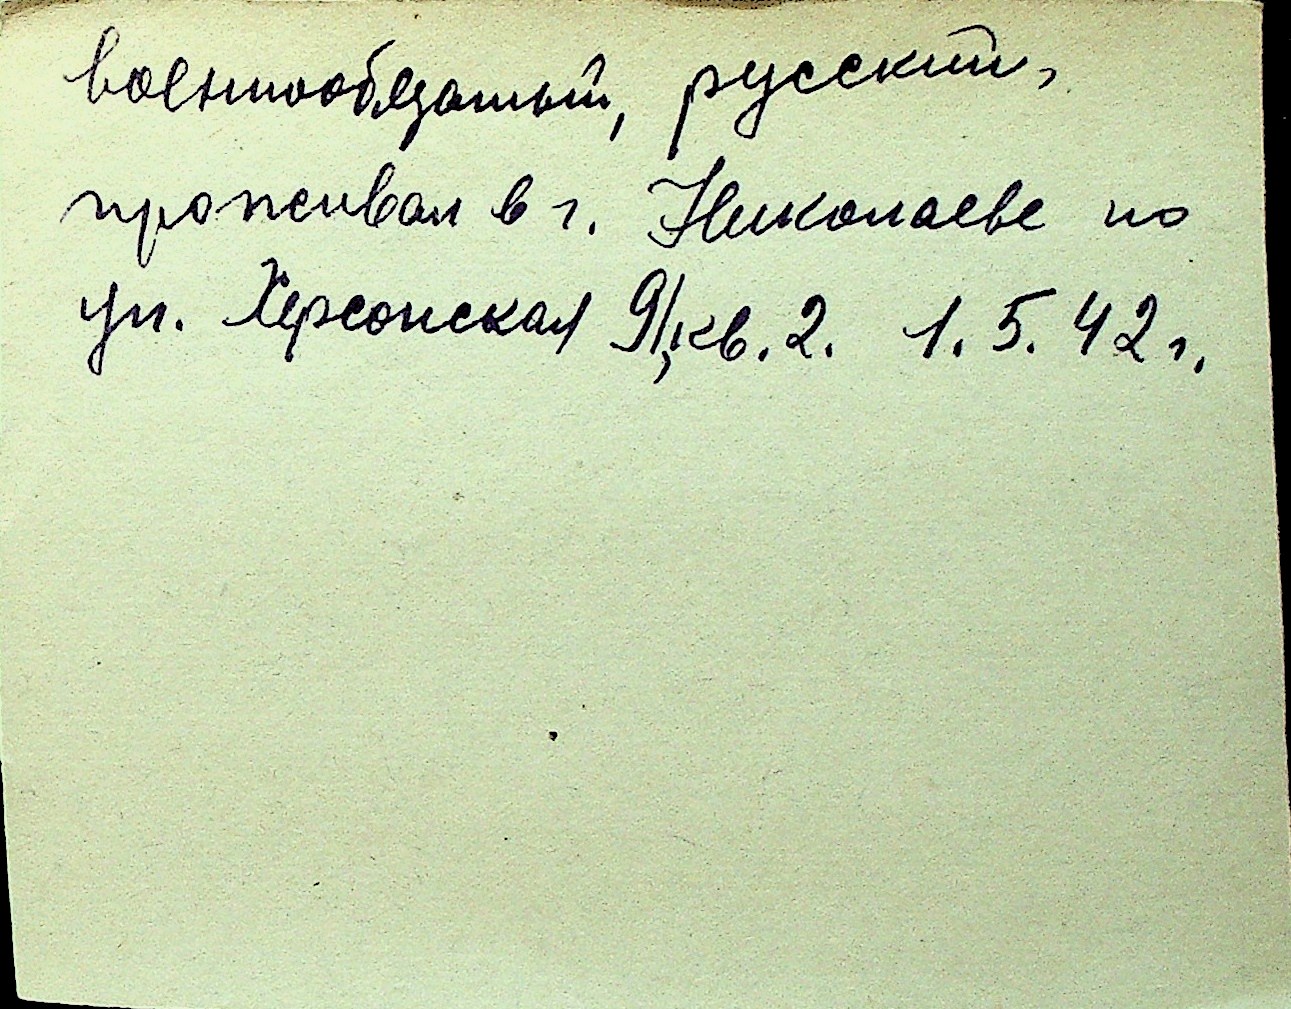 военнообязаный, русский,
проживал в г. Николаеве по
ул. Херсонская 91, кв. 2. 1. 5. 42 г.